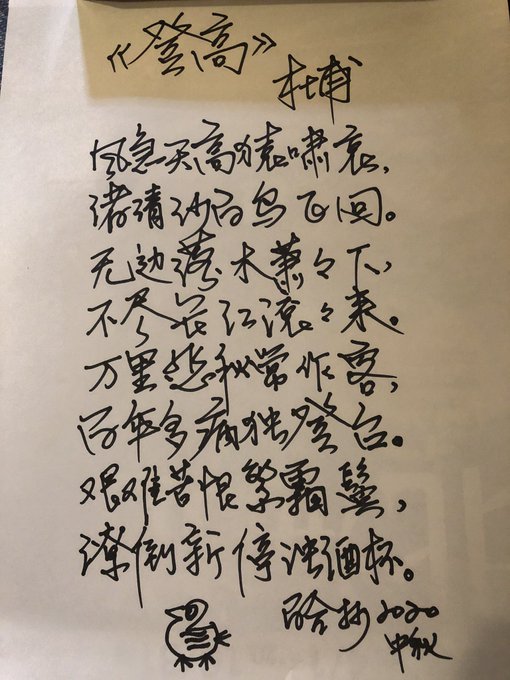 《登高》
杜甫
风急天高猿啸哀，
渚清沙白鸟飞回。
无边落木萧々下，
不尽长江滚々来。
万里悲秋常作客，
百年多病独登台。
艰难苦恨繁霜鬓，
潦倒新停浊酒杯。
抄2020
中秋